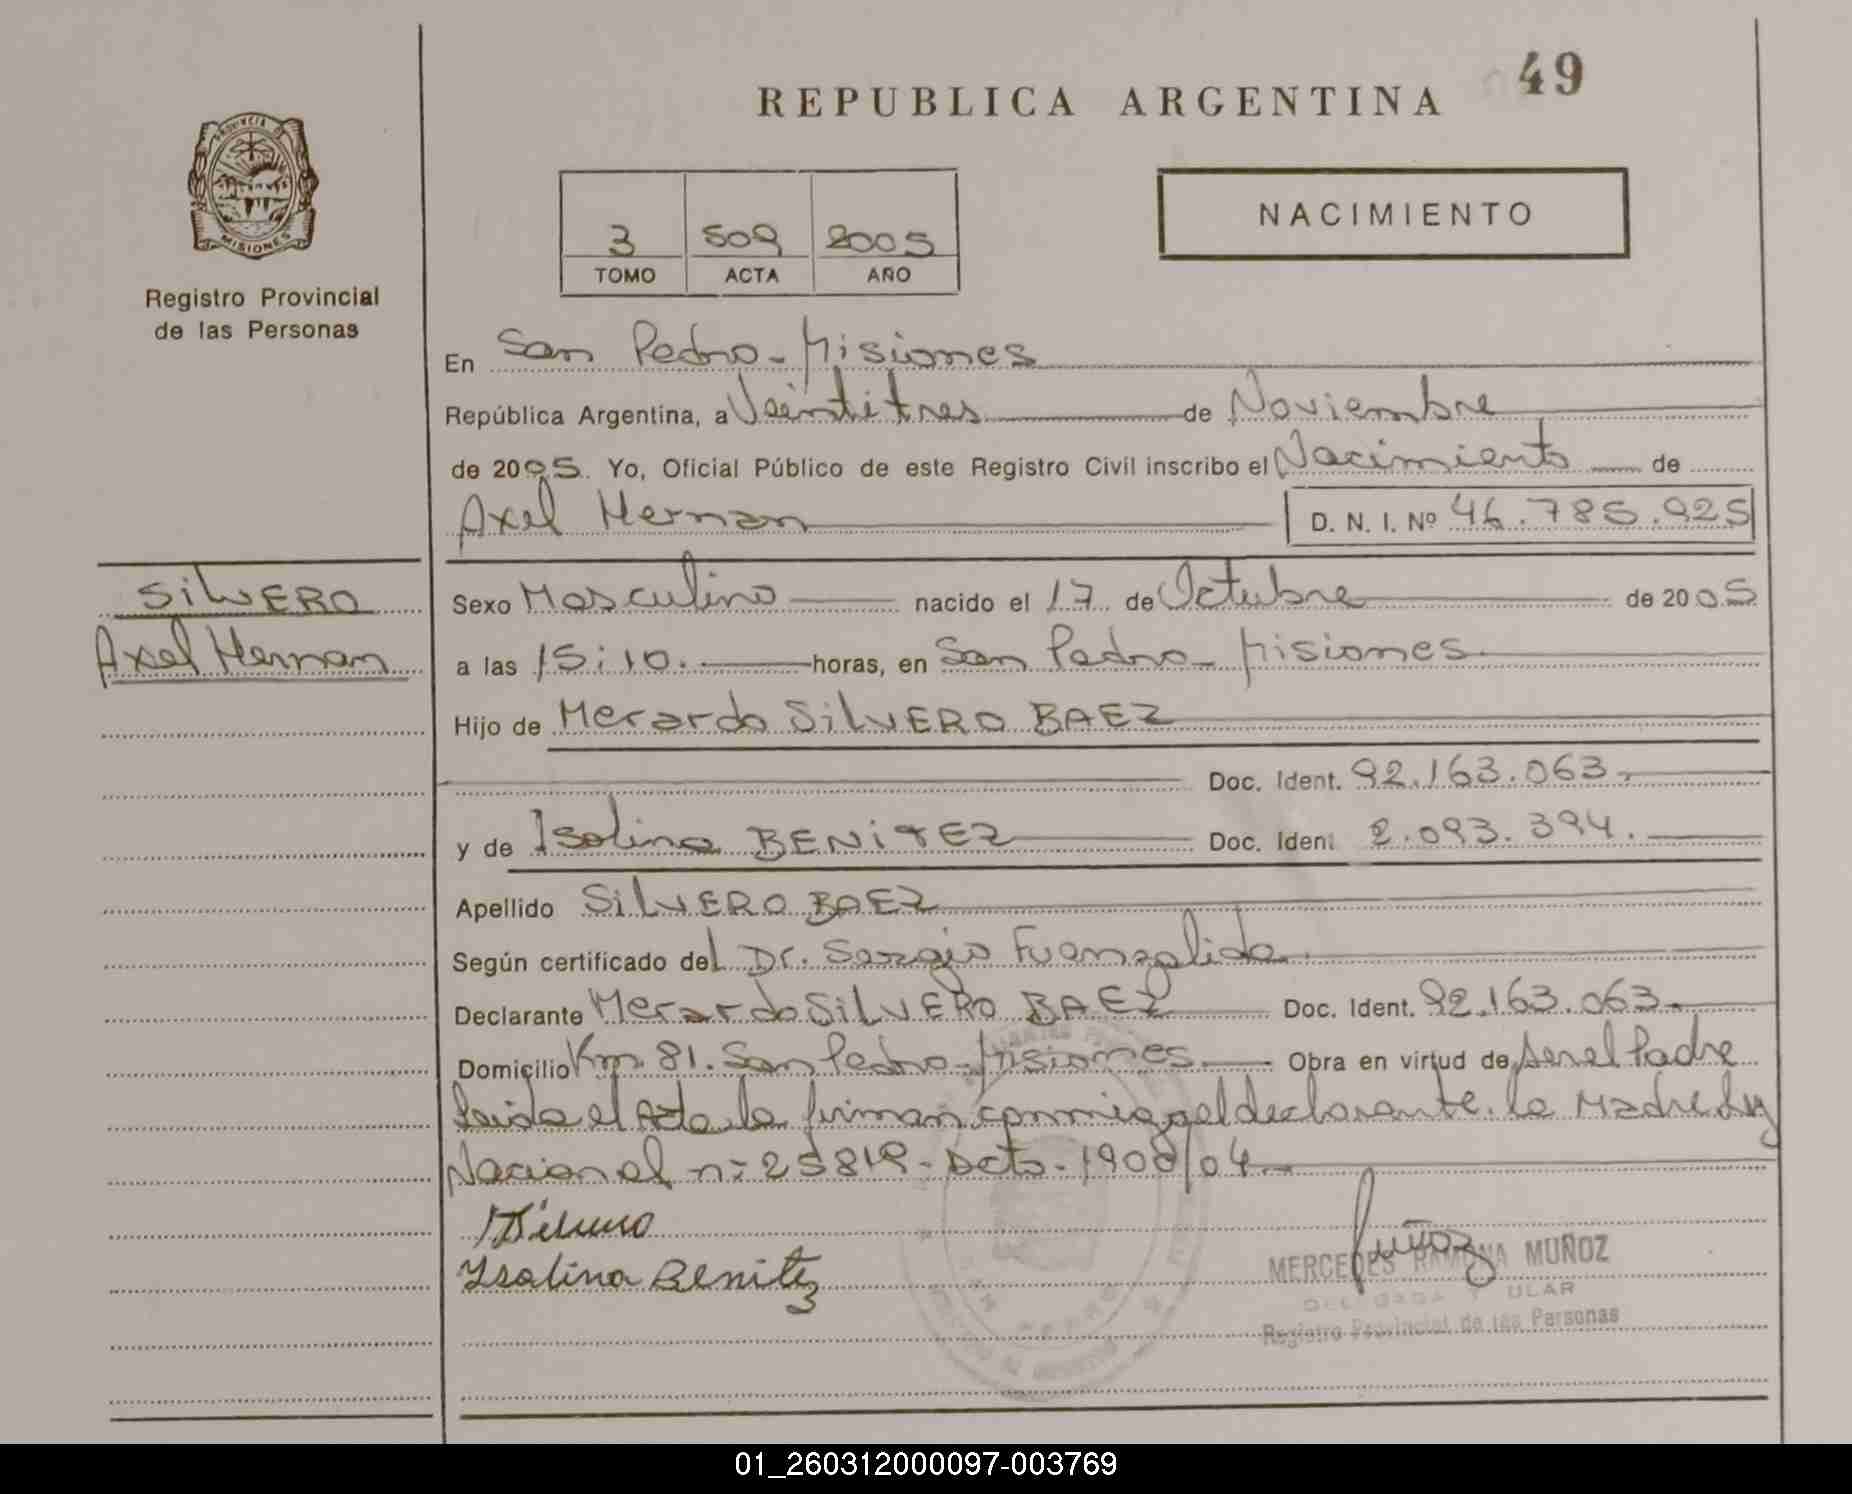 49
REPUBLICA ARGENTINA
PROVINCIA DE
MISIONES
Registro Provincial
de las Personas
NACIMIENTO
3 509 2005
TOMO ACTA AÑO
En San Pedro - Misiones
República Argentina, a Veintitres de Noviembre
de 2005. Yo, Oficial Público de este Registro Civil inscribo el Nacimiento de
Axel Hernan D. N. I. Nº 46.785.925
SilVERO
Axel Hernan
Sexo Masculino nacido el 17 de Octubre de 2005
a las 15:10. horas, en San Pedro - Misiones
Hijo de Merardo SilVERO BAEZ
Doc. Ident. 92.163.063.
y de Isolina BENiTEZ Doc. Ident 2.093.394.
Apellido SilVERO BAEZ
Según certificado del Dr. Sergio Fuenzalida
Declarante Merardo SilVERO BAEZ Doc. Ident. 92.163.063.
Domicilio Km 81. San Pedro - Misiones. Obra en virtud de ser el Padre
Leida el Acta la firman conmigo el declarante. la Madre Ley
Nacional nº 25819 - Dcto - 1900/04
Ysolina Benitez
Muñoz
MERCEDES RAMONA MUÑOZ
Registro Provincial de las Personas
01_260312000097-003769